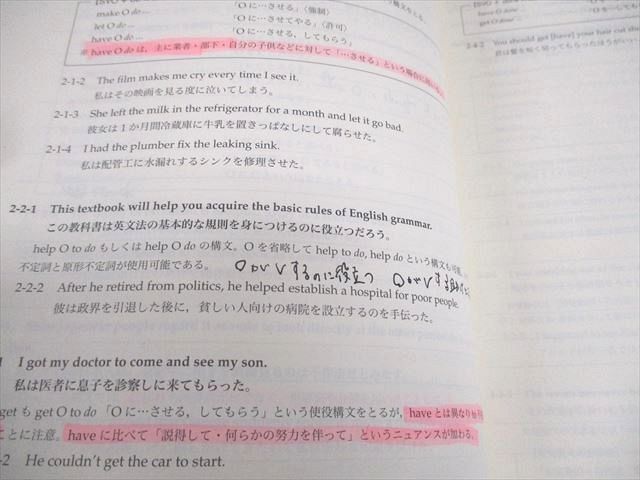 make O do ... 「Oに…させる」〈強制〉
let O do ... 「Oに…させてやる」〈許可〉
have O do ... 「Oに…させる，してもらう」
※have O do は，主に業者・部下・自分の子供などに対して「…させる」という場合に用いる。
2-1-2 The film makes me cry every time I see it.
私はその映画を見る度に泣いてしまう。
2-1-3 She left the milk in the refrigerator for a month and let it go bad.
彼女は1か月間冷蔵庫に牛乳を置きっぱなしにして腐らせた。
2-1-4 I had the plumber fix the leaking sink.
私は配管工に水漏れするシンクを修理させた。
2-2-1 This textbook will help you acquire the basic rules of English grammar.
この教科書は英文法の基本的な規則を身につけるのに役立つだろう。
help O to do もしくは help O do の構文。Oを省略して help to do, help do という構文も可能。
不定詞と原形不定詞が使用可能である。
OがVするのに役立つ OがVする
2-2-2 After he retired from politics, he helped establish a hospital for poor people.
彼は政界を引退した後に，貧しい人向けの病院を設立するのを手伝った。
1 I got my doctor to come and see my son.
私は医者に息子を診察しに来てもらった。
get も get O to do 「Oに…させる，してもらう」という使役構文をとるが，have とは異なり
ことに注意。have に比べて「説得して・何らかの努力を伴って」というニュアンスが加わる。
-2 He couldn't get the car to start.
2-4-2 You should get [have] your hair cut